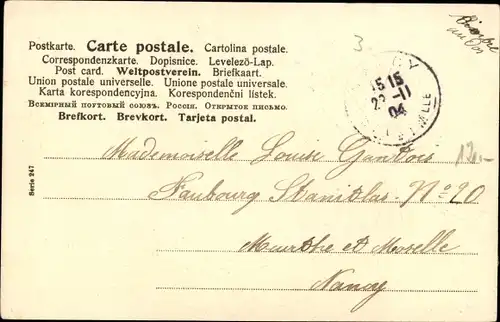 Postkarte. Carte postale. Cartolina postale.
Correspondenzkarte. Dopisnice. Levelező-Lap.
Post card. Weltpostverein. Briefkaart.
Union postale universelle. Unione postale universale.
Karta korespondencyjna. Korespondenční lístek.
Всемірный почтовый союзъ. Россия. Открытое письмо.
Brefkort. Brevkort. Tarjeta postal.
3
15 15
22-11
04
Mademoiselle Louise
12.-
Faubourg Stanislas. No 20
Meurthe et Moselle
Nancy
Serie 247